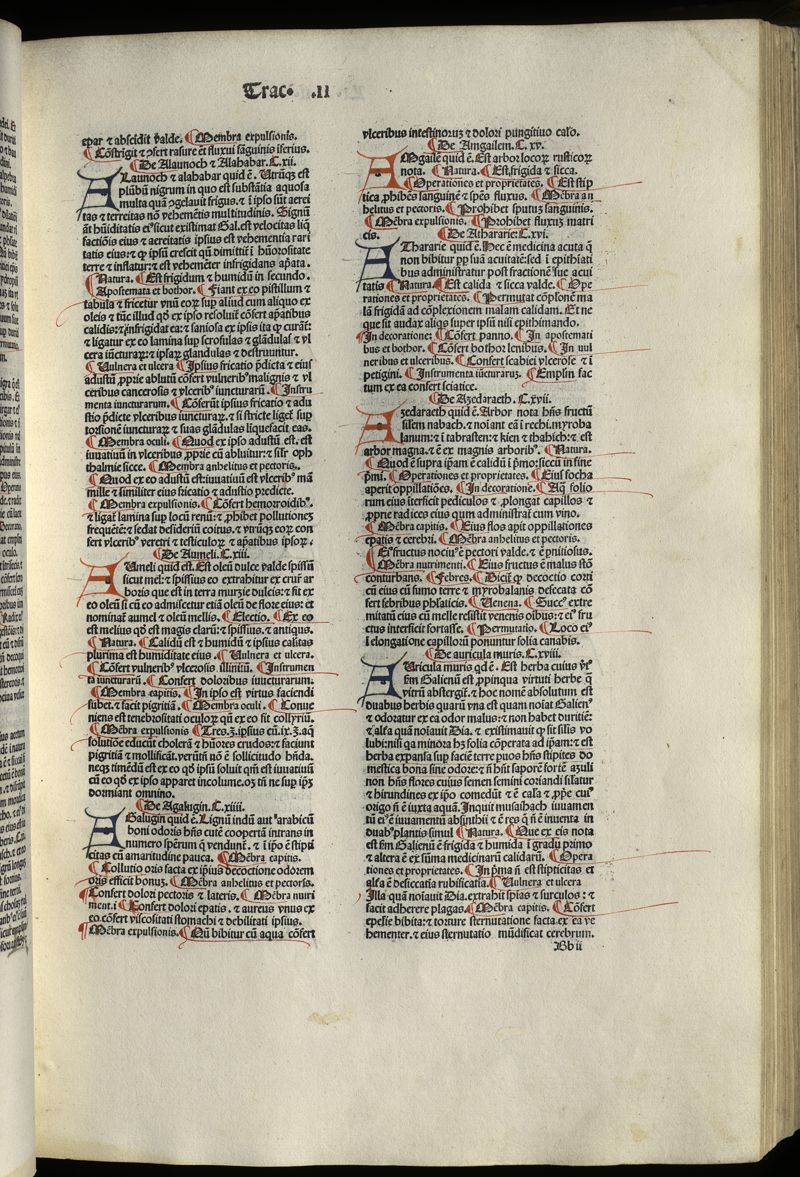 Trac. .II
epar ⁊ abscidit valde. ¶ Membra expulsionis.
¶ Cõstrigit ⁊ ɔfert rasure et fluxui sanguinis iserius.
¶ De Alaunoch ⁊ Alahabar. C. xii.
ALaunoch ⁊ alahabar quid ē. Utrũqꝫ est
plũbũ nigrum in quo est substãtia aquosa
multa quã ɔgelauit frigus. ⁊ ĩ ipso sũt aerei
tas ⁊ terreitas nõ vehemẽtis multitudinis. Signũ
aũt hũiditatis ei⁹ sicut existimat Gal. est velocitas liq̃
factiõis eius ⁊ aereitatis ipsius est vehementia rari
tatis eius: ⁊ qꝫ ipsũ crescit qũ dimittit ĩ hũorositate
terre ⁊ inflatur: ⁊ est vehemẽter infrigidans apata.
¶ Natura. ¶ Est frigidum ⁊ humidũ in secundo.
¶ Apostemata et bothor. ¶ Fiant ex eo pistillum ⁊
tabula ⁊ fricetur vnũ eoꝝ sup aliud cum aliquo ex
oleis ⁊ tũc illud qd̛ ex ipso resoluit̃ cõfert apatibus
calidis: ⁊ ĩfrigidat ea: ⁊ saniosa ex ipsis ita qꝫ curat̃:
⁊ ligatur ex eo lamina sup scrofulas ⁊ glãdulas ⁊ vl
cera iũcturaꝝ: ⁊ ipsaꝝ glandulas ⁊ destruuntur.
¶ Vulnera et vlcera ¶ Ipsius fricatio p̃dicta ⁊ eius
adustũ ꝓprie ablutũ cõfert vulnerib⁹ malignis ⁊ vl
ceribus cancerosis ⁊ vlcerib⁹ iuncturarũ. ¶ Instru
menta iuncturarum. ¶ Cõferũt ipsius fricatio ⁊ adu
stio p̃dicte vlceribus iuncturaꝝ. ⁊ si stricte liget̃ sup
torsionẽ iuncturaꝝ ⁊ suas glãdulas liquefacit eas.
¶ Membra oculi. ¶ Quod ex ipso adustũ est. est
iuuatiuũ in vlceribus ꝓprie cũ abluitur: ⁊ sil̃r oph
thalmie sicce. ¶ Membra anhelitus et pectoris.
¶ Quod ex eo adustũ est: iuuatiuũ est vlcerib⁹ mã
mille ⁊ similiter eius fricatio ⁊ adustio predicte.
¶ Membra expulsionis. ¶ Cõfert hemorroidib⁹.
⁊ ligat̃ lamina sup locũ renũ: ⁊ ꝓhibet pollutiones
frequẽtẽ: ⁊ sedat desideriũ coitus. ⁊ vtrũqꝫ eoꝝ con
fert vlcerib⁹ veretri ⁊ testiculoꝝ ⁊ apatibus ipsoꝝ.
¶ De Aumeli. C. xiii.
AUmeli quid est. Est oleũ dulce valde spissũ
sicut mel: ⁊ spissius eo extrahitur ex crur̃ ar
boris que est in terra murzie dulcis: ⁊ fit ex
eo oleũ si cũ eo admiscetur etiã oleũ de flore eius: et
nominat̃ aumel ⁊ oleũ mellis. ¶ Electio. ¶ Ex eo
est melius qd̛ est magis clarũ: ⁊ spissius. ⁊ antiqus.
¶ Natura. ¶ Calidũ est ⁊ humidũ ⁊ ipsius calitas
plurima est humiditate eius. ¶ Vulnera et ulcera.
¶ Cõfert vulnerib⁹ ylcerosis illinitũ. ¶ Instrumen
ta iuncturarũ. ¶ Confert doloribus iuncturarum.
¶ Membra capitis. ¶ In ipso est virtus faciendi
subet. ⁊ facit pigritiã. ¶ Membra oculi. ¶ Conue
niens est tenebrositati oculoꝝ qũ ex eo fit collyriũ.
¶ Mẽbra expulsionis ¶ Tres.ʒ. ipsius cũ. ix.ʒ. aq̃
solutiõe educũt cholerã ⁊ hũores crudos: ⁊ faciunt
pigritiã ⁊ mollificãt. verũtñ nõ ẽ sollicitudo hñda.
neqꝫ timẽdũ est ex eo qd̛ ipsũ soluit qm̃ est iuuatiuũ
cũ eo qd̛ ex ipso apparet incolume. oꝫ tñ ne sup ip̃ꝫ
dormiant omnino.
¶ De Agalugin. C. xiiii.
AGalugin quid ẽ. Lignũ indũ aut̛ arabicũ
boni odoris hñs cutẽ coopertã intrans in
numero sperum q̃ vendunt̃. ⁊ ĩ ip̃o ẽ stipti
citas cũ amaritudine pauca. ¶ Mẽbra capitis.
¶ Collutio oris facta ex ip̃ius decoctione odorem
oris efficit bonuꝫ. ¶ Mẽbra anhelitus et pectoris.
¶ Confert dolori pectoris ⁊ lateris. ¶ Mẽbra nutri
ment.i ¶ Confert dolori epatis. ⁊ aureus vnus ex
eo. cõfert viscositati stomachi ⁊ debilitati ipsius.
¶ Mẽbra expulsionis. ¶ Qũ bibitur cũ aqua cõfert
vlceribus intestinoruꝫ ⁊ dolori pungitiuo calo.
¶ De Amgailem. C. xv.
AMgailẽ quid ẽ. Est arbor locoꝝ rusticoꝝ
nota. ¶ Natura. ¶ Est frigida ⁊ sicca.
¶ Operationes et proprietates. ¶ Est stip
tica ꝓhibẽs sanguinẽ ⁊ spẽs fluxus. ¶ Mẽbra an
helitus et pectoris. ¶ Prohibet sputuꝫ sanguinis.
¶ Mẽbra expulsionis. ¶ Prohibet fluxuꝫ matri
cis. ¶ De Athararie. C. xvi.
AThararie quid ẽ. Hec ẽ medicina acuta q̃
non bibitur pp suã acuitatẽ: sed ĩ epithiati
bus administratur post fractionẽ sue acui
tatis ¶ Natura. ¶ Est calida ⁊ sicca valde. ¶ Ope
rationes et proprietates. ¶ Permutat cõplõnẽ ma
lã frigidã ad cõplexionem malam calidam. Et ne
que fit audax aliqs super ipsũ nisi epithimando.
¶ In decoratione: ¶ Cõfert panno. ¶ In apostemati
bus et bothor. ¶ Cõfert bothoꝝ lenibus. ¶ In vul
neribus et ulceribus. ¶ Confert scabiei ylcerose ⁊ ĩ
petigini. ¶ Instrumenta iũcturaruꝫ. ¶ Emplm̃ fac
tum ex ea confert sciatice.
¶ De Azedaraeth. C. xvii.
AZedaraeth quid ẽ. Arbor nota hñs fructũ
silem nabach. ⁊ noiant eã ĩ rechi. myroba
lanum: ⁊ ĩ tabrasten: ⁊ kien ⁊ thabich: ⁊ est
arbor magna. ⁊ ẽ ex magnis arborib⁹. ¶ Natura.
¶ Quod ẽ supra ip̃am ẽ calidũ ĩ p̃mo: siccũ in fine
p̃mi. ¶ Operationes et proprietates. ¶ Ei⁹ focha
aperit oppillatiões. ¶ In decoratione. ¶ Aq̃ folio
rum eius ĩterficit pediculos ⁊ ꝓlongat capillos ⁊
ꝓprie radices eius qum administrat̃ cum vino.
¶ Mẽbra capitis. ¶ Eius flos apit oppillationes
epatis ⁊ cerebri. ¶ Mẽbra anhelitus et pectoris.
¶ Ei⁹ fructus nociu⁹ ẽ pectori valde. ⁊ ẽ pnitiosus.
¶ Mẽbra nutrimenti. ¶ Eius fructus ẽ malus stõ
conturbans. ¶ Febres. ¶ Dicit̃ qꝫ decoctio corti
cũ eius cũ fumo terre ⁊ myrobalanis defecata cõ
fert febribus phlaticis. ¶ Venena. ¶ Succ⁹ extre
mitatũ eius cũ melle resistit venenis oĩbus: ⁊ ei⁹ fru
ctus interficit fortasse. ¶ Permutatio. ¶ Loco ei⁹
ĩ elongatione capilloꝝ ponuntur folia canabis.
¶ De auricula muris. C. xviii.
AUricula muris qd̛ ẽ. Est herba cuius vĩ
fm̃ Galienũ est ꝓpinqua virtuti herbe q̃
vitrũ abstergit̃. ⁊ hoc nomẽ absolutum est
duabus herbis quarũ vna est quam noiat Galien⁹
⁊ odoratur ex ea odor malus: ⁊ non habet duritiẽ:
⁊ al̃fa quã noiauit Dia. ⁊ existimauit qꝫ sit filis vo
lubi: nisi qa minora hꝫ folia cõperata ad ip̃am: ⁊ est
herba expansa sup faciẽ terre pnos hñs stipites do
mestica bona sine odore: ⁊ ñ hñt saporẽ fortẽ azuli
non hñs flores cuius semen semini coriandi filatur
⁊ hirundines ex ip̃o comedũt ⁊ ẽ casa ⁊ ꝓpe cui⁹
origo ñ ẽ iuxta aquã. Inquit musaihach iuuamen
tũ ei⁹ ẽ iuuamentũ absinthii ⁊ ẽ res q̃ ñ ẽ inuenta in
duab⁹ plantis simul ¶ Natura. ¶ Que ex eis nota
est fm̃ Galienũ ẽ frigida ⁊ humida ĩ gradu primo
⁊ altera ẽ ex sũma medicinarũ calidarũ. ¶ Opera
tiones et proprietates. ¶ In p̃ma ñ est stipticitas et
al̃fa ẽ desiccatia rubificatia. ¶ Vulnera et ulcera
¶ Illa quã noiauit Dia. extrahit spias ⁊ surculos: ⁊
facit adherere plagas. ¶ Mẽbra capitis. ¶ Cõfert
epesie bibita: ⁊ torture sternutatione facta. ex ea ve
hementer. ⁊ eius sternutatio mũdificat cerebrum.
Bb ii